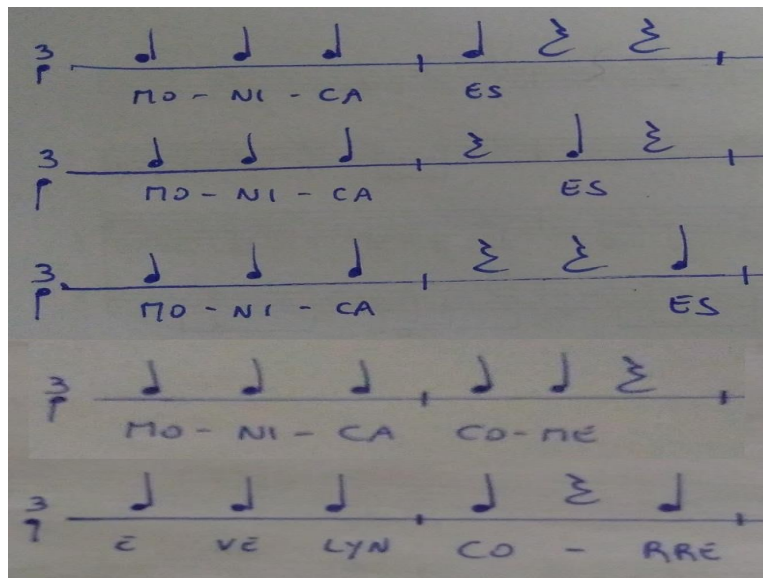 3
MO - NI - CA ES
3
MO - NI - CA ES
3
MO - NI - CA ES
3
MO - NI - CA CO - ME
3
E VE LYN CO - RRE